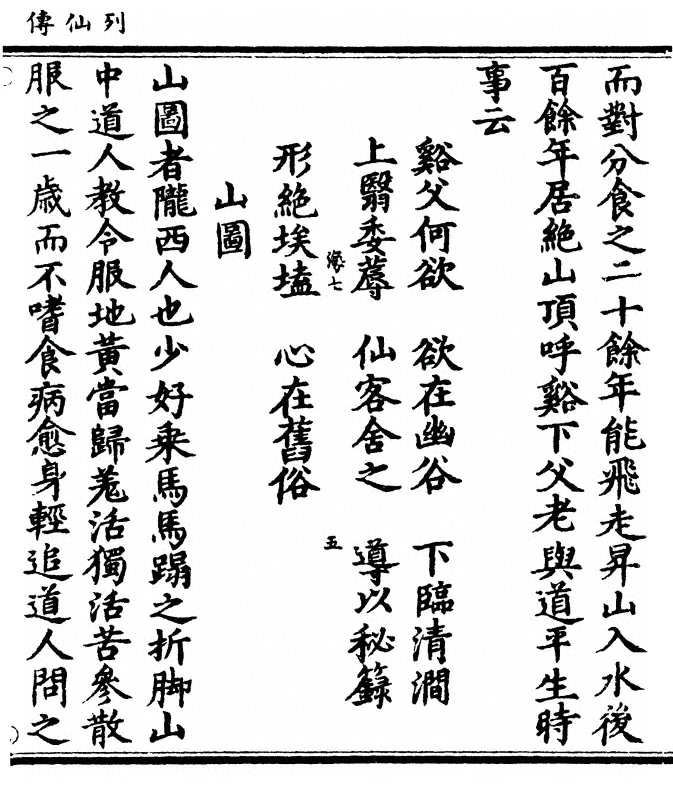 列仙傳
而對分食之二十餘年能飛走昇山入水後
百餘年居絶山頂呼谿下父老與道平生時
事云
谿父何欲　欲在幽谷　下臨清澗
上翳委蓐　仙客舍之　導以秘籙
形絶埃𡏖　心在舊俗
五
山圖
山圖者隴西人也少好乗馬馬蹋之折脚山
中道人教令服地黄當歸羌活獨活苦參散
服之一歳而不嗜食病愈身輕追道人問之